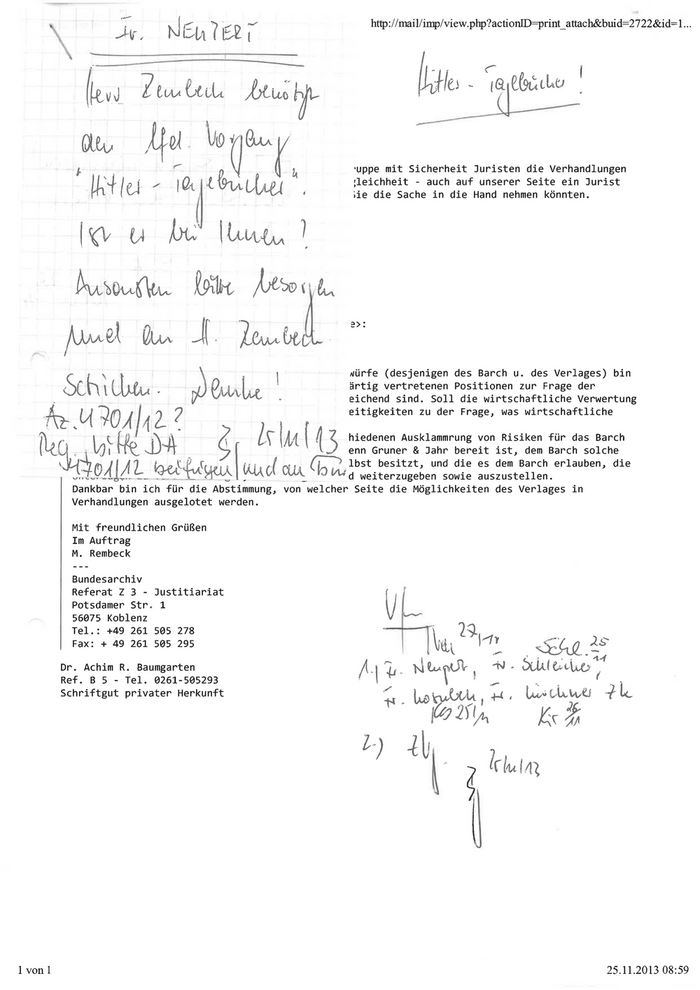 http://mail/imp/view.php?actionID=print_attach&buid=2722&id=1...
Fr. NEUPERT
Hitler-Tagebücher!
Herr Zembeck benötigt
den lfd. Vorgang
"Hitler-Tagebücher".
Ist er bei Ihnen?
Ansonsten bitte besorgen
und an H. Zembeck
schicken. Danke!
25/11/13
Az. 4701/12?
Reg. bitte DA
4701/12 beifügen und an
ruppe mit Sicherheit Juristen die Verhandlungen
gleichheit - auch auf unserer Seite ein Jurist
Sie die Sache in die Hand nehmen könnten.
e>:
würfe (desjenigen des Barch u. des Verlages) bin
ärtig vertretenen Positionen zur Frage der
eichend sind. Soll die wirtschaftliche Verwertung
eitigkeiten zu der Frage, was wirtschaftliche
hiedenen Ausklammrung von Risiken für das Barch
enn Gruner & Jahr bereit ist, dem Barch solche
lbst besitzt, und die es dem Barch erlauben, die
d weiterzugeben sowie auszustellen.
Dankbar bin ich für die Abstimmung, von welcher Seite die Möglichkeiten des Verlages in
Verhandlungen ausgelotet werden.
Mit freundlichen Grüßen
Im Auftrag
M. Rembeck
---
Bundesarchiv
Referat Z 3 - Justitiariat
Potsdamer Str. 1
56075 Koblenz
Tel.: +49 261 505 278
Fax: + 49 261 505 295
Dr. Achim R. Baumgarten
Ref. B 5 - Tel. 0261-505293
Schriftgut privater Herkunft
27/11
Schl. 25/11
1.) Fr. Neupert, Fr. Schleicher,
Fr. Kirchner z.K.
25/11 Kir 26/11
2.) zVg.
25/11/13
1 von 1
25.11.2013 08:59